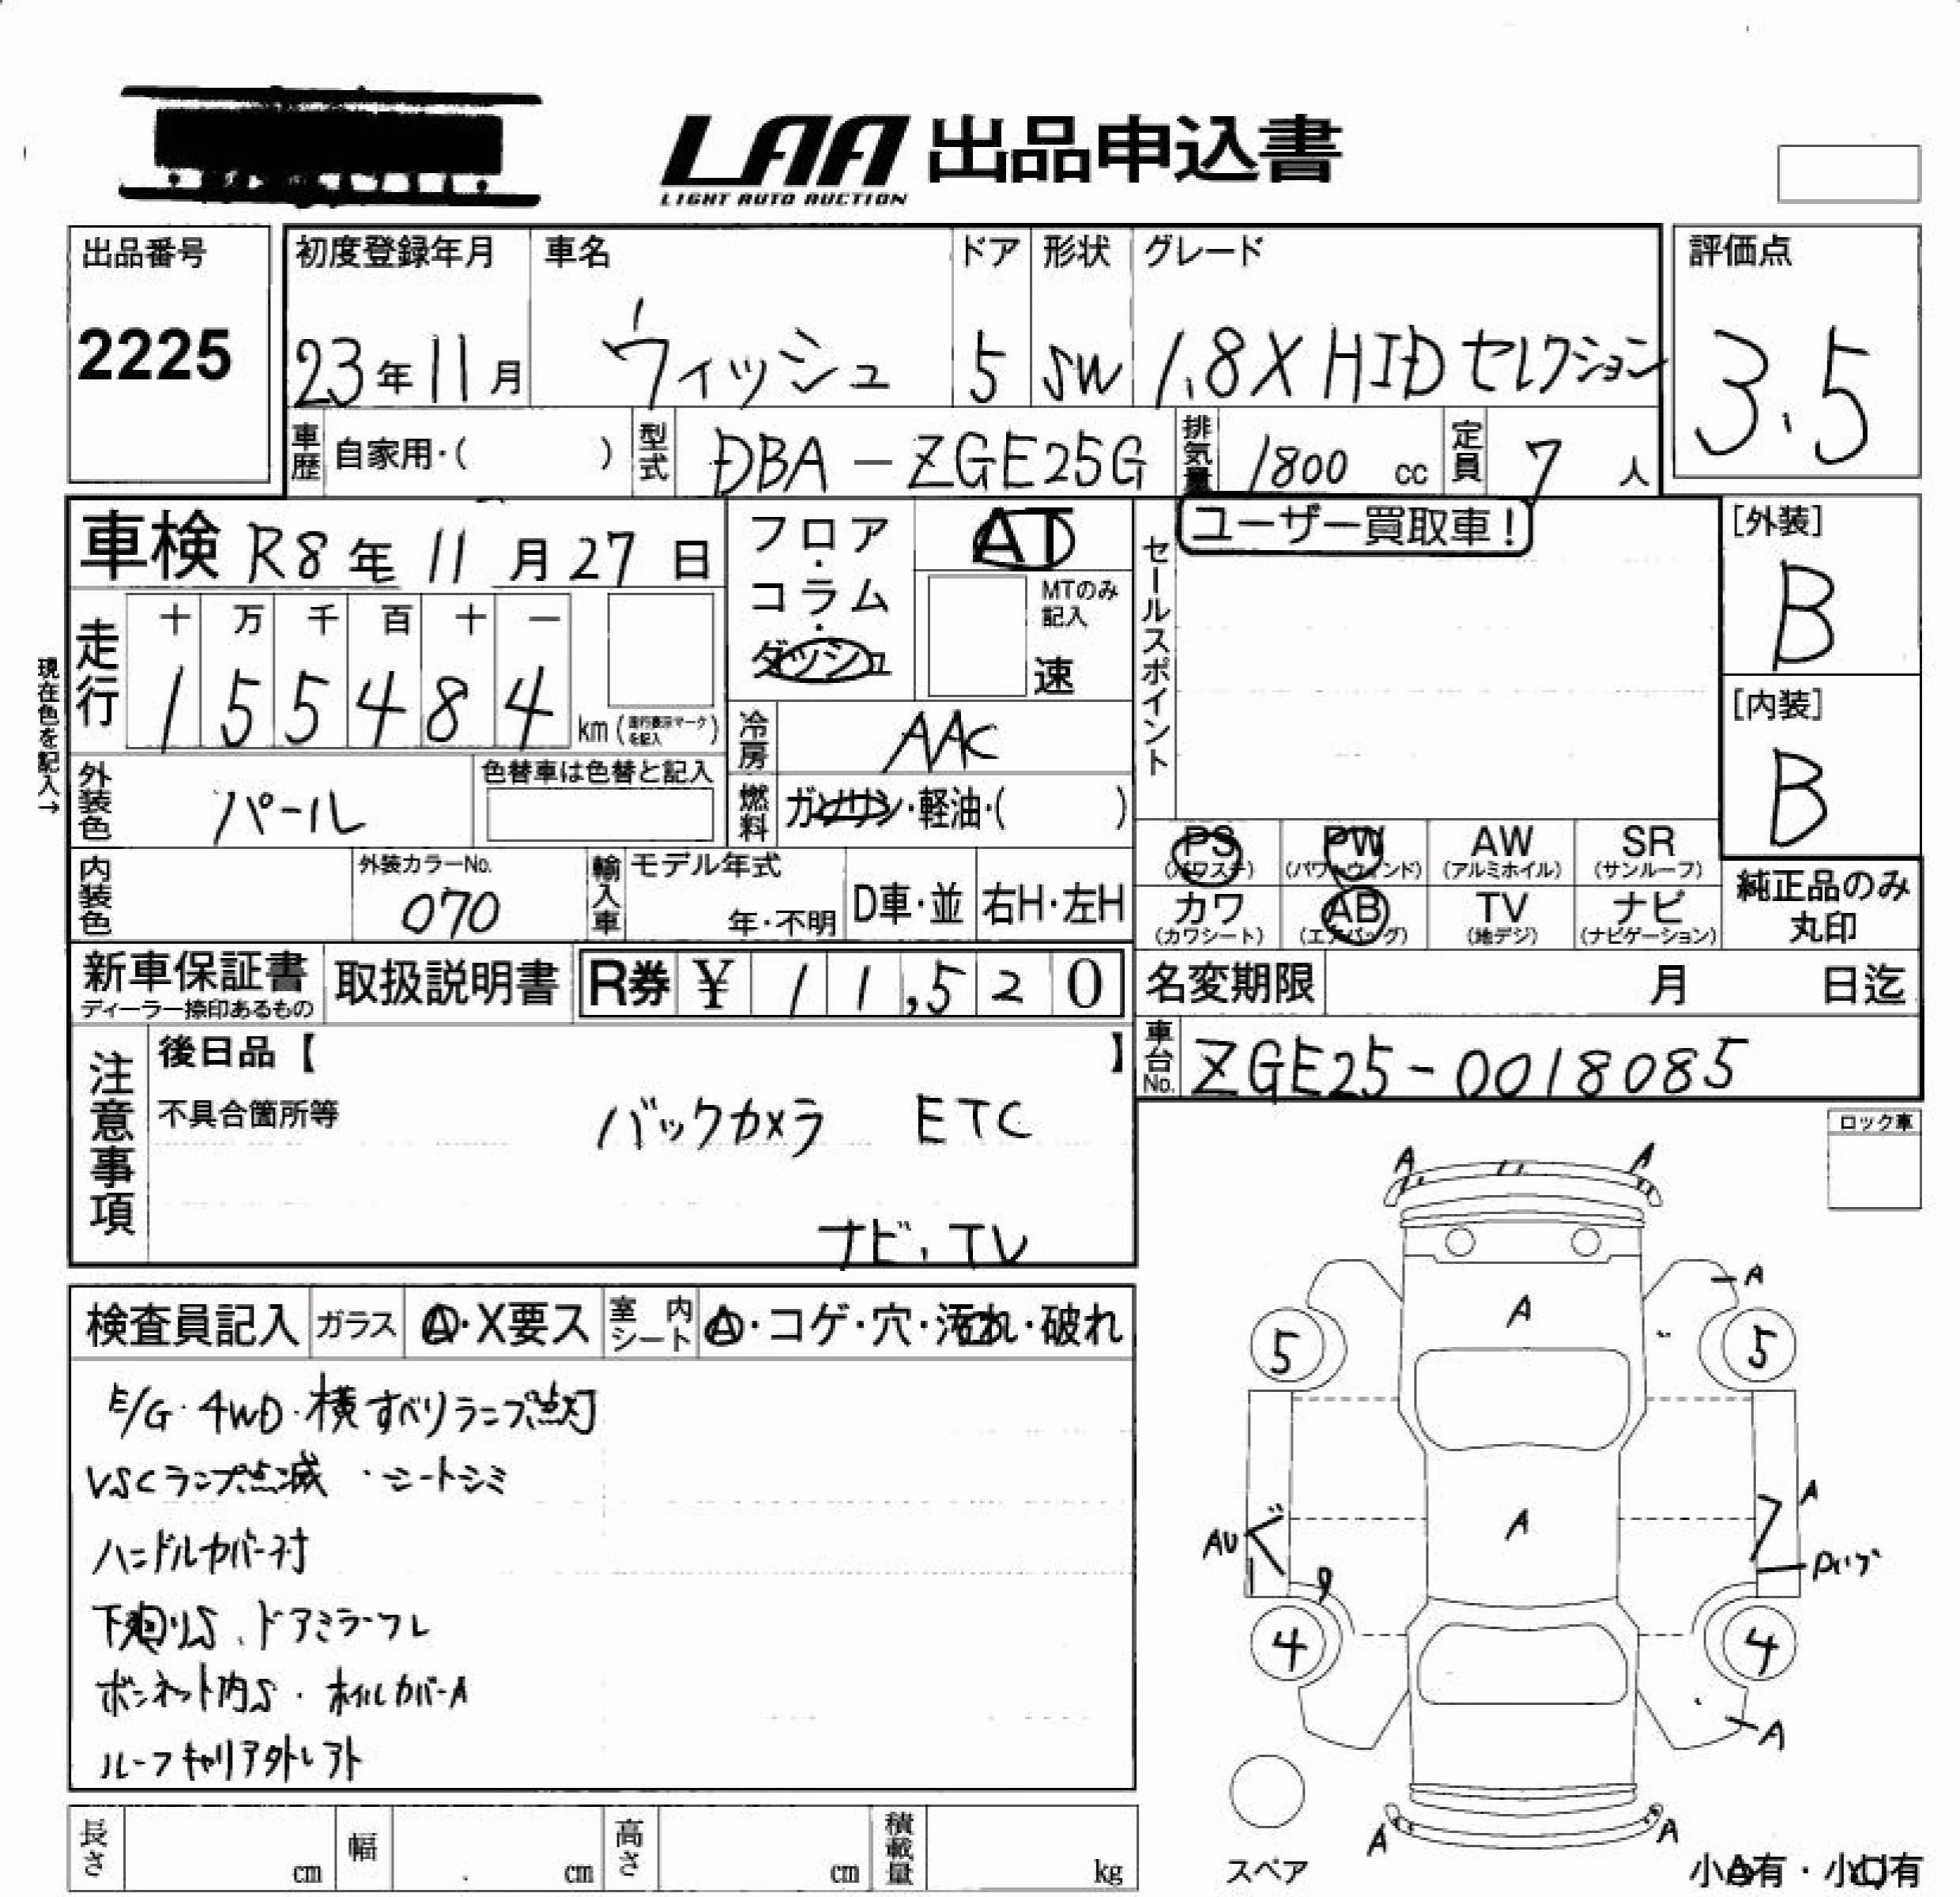 LAA 出品申込書
LIGHT AUTO AUCTION
出品番号
2225
初度登録年月
23年11月
車名
ウィッシュ
ドア
5
形状
SW
グレード
1.8X HID セレクション
評価点
3.5
車歴 自家用・( )
型式 DBA-ZGE25G
排気量 1800 cc
定員 7人
車検 R8年11月27日
フロア・コラム・ダッシュ
AT
MTのみ記入
速
セールスポイント
ユーザー買取車!
[外装]
B
[内装]
B
現在色を記入→
走行
十 万 千 百 十 一
1 5 5 4 8 4 km (走行表示マークを記入)
冷房 AAC
外装色 パール
色替車は色替と記入
燃料 ガソリン・軽油・( )
PS (パワステ)
PW (パワーウィンド)
AW (アルミホイル)
SR (サンルーフ)
カワ (カワシート)
AB (エアバッグ)
TV (地デジ)
ナビ (ナビゲーション)
純正品のみ丸印
内装色
外装カラーNo.
070
輸入車
モデル年式
年・不明
D車・並
右H・左H
新車保証書
ディーラー捺印あるもの
取扱説明書
R券 ¥ 11,520
名変期限 月 日迄
車台No. ZGE25-0018085
注意事項
後日品【 】
不具合箇所等
バックカメラ ETC
ナビ・TV
ロック車
検査員記入
ガラス A・X要ス
室内シート A・コゲ・穴・汚れ・破れ
E/G・4WD・横すべりランプ点灯
VSCランプ点滅 ・シートシミ
ハンドルカバー付
下廻りS、ドアミラーフレ
ボンネット内S・ホイルカバーA
ルーフキャリア外レアト
A A
A
A
5 5
A
A
AU
4 4
A
A A
スペア
小A有・小U有
長さ cm
幅 cm
高さ cm
積載量 kg